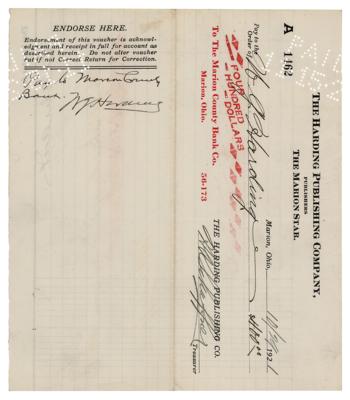 ENDORSE HERE.
Endorsement of this voucher is acknowl-
edgment and receipt in full for account as
described herein. Do not alter voucher
but if not Correct Return for Correction.
Pay to Marion County
Bank.
W G Harding
THE HARDING PUBLISHING COMPANY,
PUBLISHERS
THE MARION STAR.
A 1462
Marion, Ohio, 192
Pay to the
Order of W G Harding
$400.00
FOUR HUNDRED
DOLLARS
To The Marion County Bank Co.
Marion, Ohio. 56-173
THE HARDING PUBLISHING CO.
Treasurer